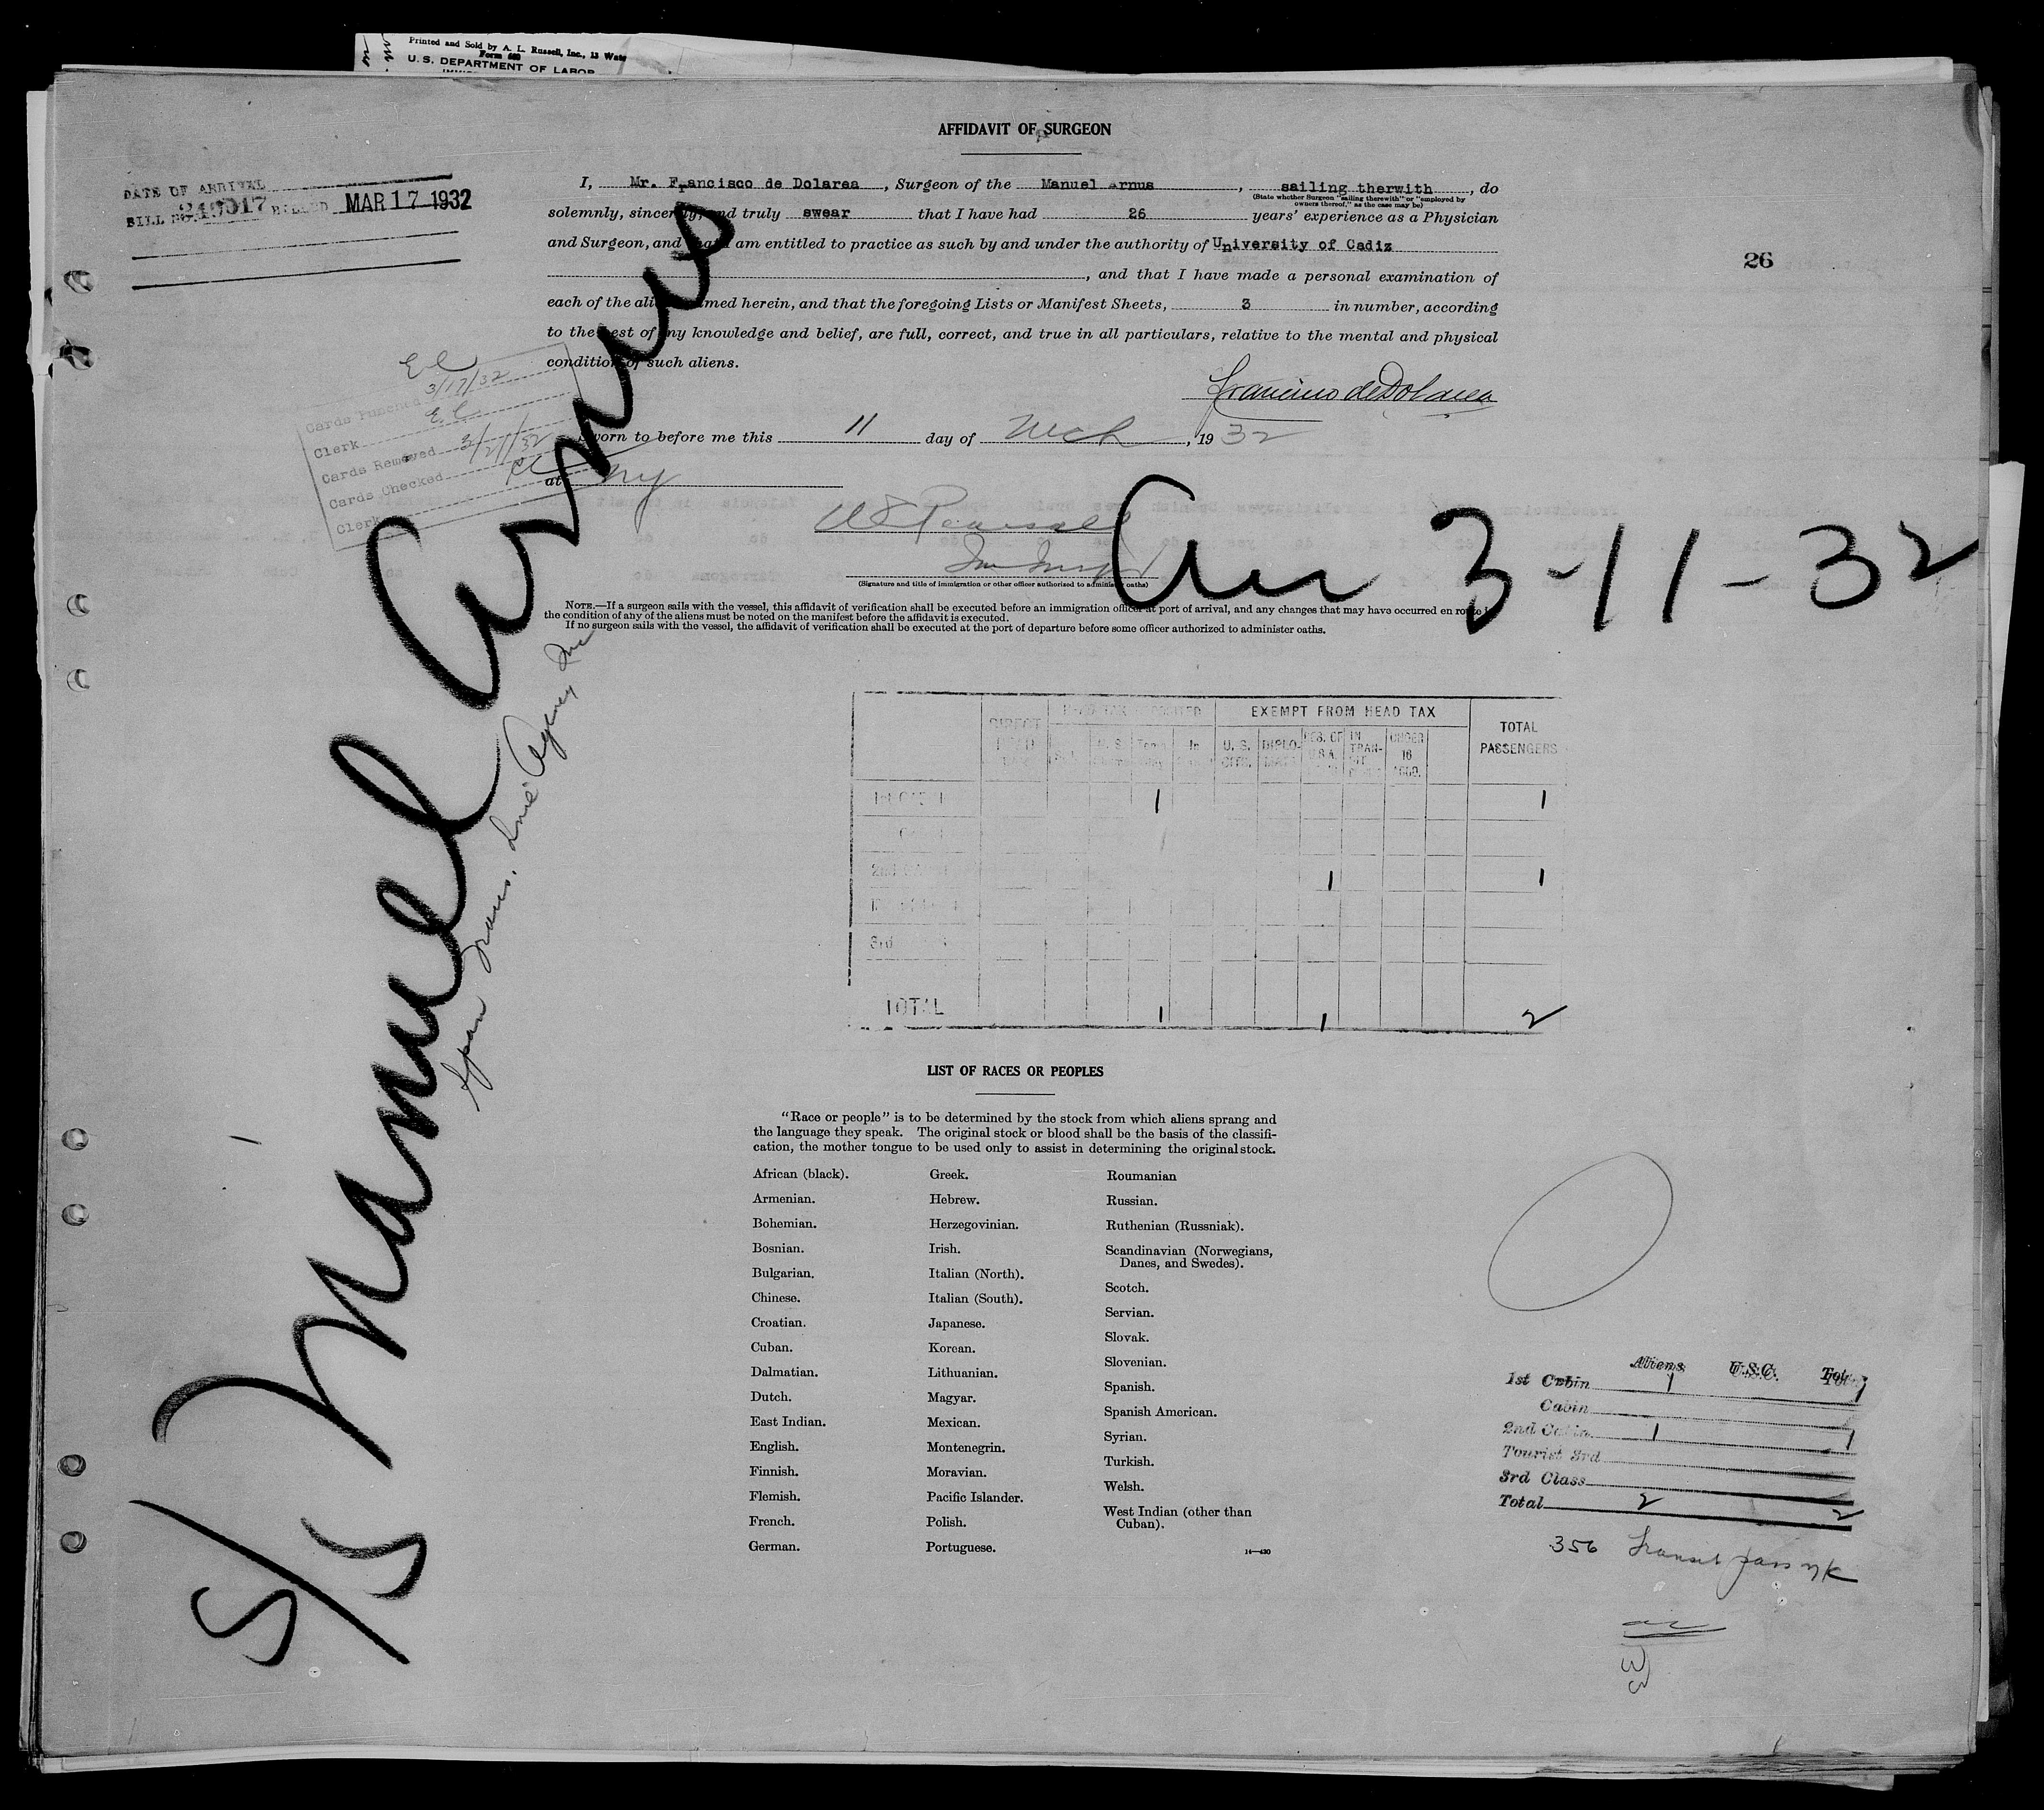 Printed and Sold by A. L. Russell, Inc., 13 Wate
Form 680
U. S. DEPARTMENT OF LABOR
AFFIDAVIT OF SURGEON
DATE OF ARRIVAL
BILL NO. BILLED MAR 17 1932
I, Mr. Francisco de Dolarea, Surgeon of the Manuel Arnus, sailing therwith, do
(State whether Surgeon "sailing therewith" or "employed by
owners thereof," as the case may be)
solemnly, sincerely, and truly swear that I have had 26 years' experience as a Physician
and Surgeon, and that I am entitled to practice as such by and under the authority of University of Cadiz
, and that I have made a personal examination of
26
each of the aliens named herein, and that the foregoing Lists or Manifest Sheets, 3 in number, according
to the best of my knowledge and belief, are full, correct, and true in all particulars, relative to the mental and physical
condition of such aliens.
Francisco de Dolarea
Cards Punched 3/17/32
Clerk
Cards Removed 3/21/32
Cards Checked
Clerk
Sworn to before me this 11 day of Mch, 1932
at NY
(Signature and title of immigration or other officer authorized to administer oaths)
3-11-32
NOTE.—If a surgeon sails with the vessel, this affidavit of verification shall be executed before an immigration officer at port of arrival, and any changes that may have occurred en route in
the condition of any of the aliens must be noted on the manifest before the affidavit is executed.
If no surgeon sails with the vessel, the affidavit of verification shall be executed at the port of departure before some officer authorized to administer oaths.
S/S Manuel Arnus
Span Trans. Line Agency Inc
HEAD TAX DEPOSITED EXEMPT FROM HEAD TAX TOTAL PASSENGERS
DIRECT HEAD TAX U. S. In U. S. CITZ. DIPLO-MATS RES. OF U.S.A. IN TRAN-SIT UNDER 16 ACCO.
1st CABIN 1 1
2nd 1 1
3rd
TOTAL 1 1 2
LIST OF RACES OR PEOPLES
"Race or people" is to be determined by the stock from which aliens sprang and
the language they speak. The original stock or blood shall be the basis of the classifi-
cation, the mother tongue to be used only to assist in determining the original stock.
African (black).
Armenian.
Bohemian.
Bosnian.
Bulgarian.
Chinese.
Croatian.
Cuban.
Dalmatian.
Dutch.
East Indian.
English.
Finnish.
Flemish.
French.
German.
Greek.
Hebrew.
Herzegovinian.
Irish.
Italian (North).
Italian (South).
Japanese.
Korean.
Lithuanian.
Magyar.
Mexican.
Montenegrin.
Moravian.
Pacific Islander.
Polish.
Portuguese.
Roumanian
Russian.
Ruthenian (Russniak).
Scandinavian (Norwegians,
Danes, and Swedes).
Scotch.
Servian.
Slovak.
Slovenian.
Spanish.
Spanish American.
Syrian.
Turkish.
Welsh.
West Indian (other than
Cuban).
14—430
Aliens U.S.C. Total
1st Cabin 1 1
Cabin
2nd Cabin 1 1
Tourist 3rd
3rd Class
Total 2 2
356 Transit pass